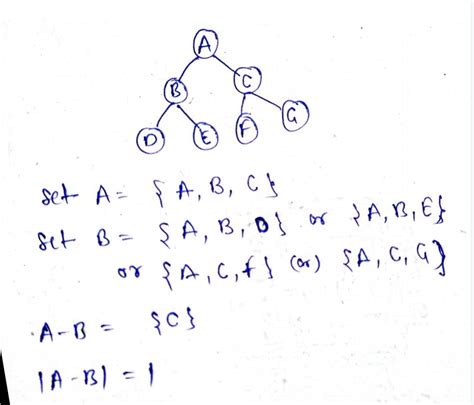 A
B C
D E F G
Set A = {A, B, C}
Set B = {A, B, D} or {A, B, E}
or {A, C, f} (or) {A, C, G}
A-B = {C}
|A-B| = 1